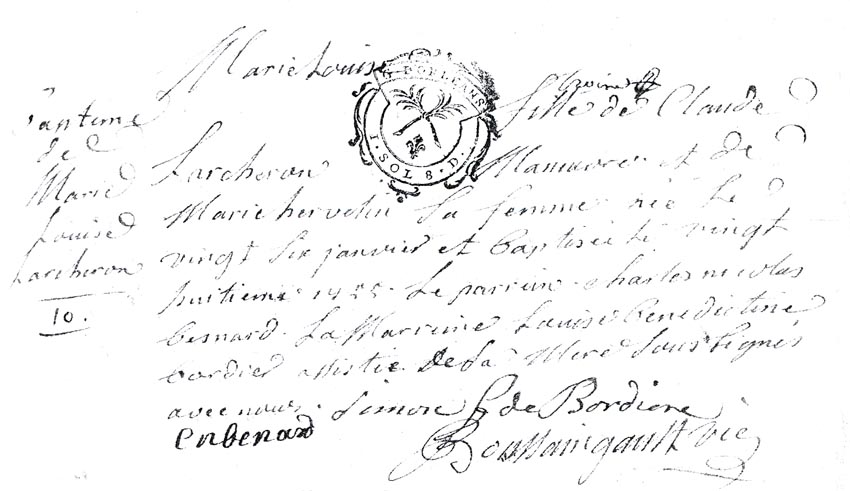 Baptême
de
Marie
Louise
Larcheron
10.
Marie Louise
G. D'ORLEANS
I. SOL 8. D.
fille de Claude
Larcheron Manuvre et de
Marie hervelin Sa femme née Le
vingt Six janvier et baptisée Le vingt
huitieme 1755. Le parrein charles nicolas
besnard. La Marreine Louise Benedictine
bordier assistée de Sa Mere Soussignés
avec nous. Simon L de Bordiere
cnbenard Boussaingault vic